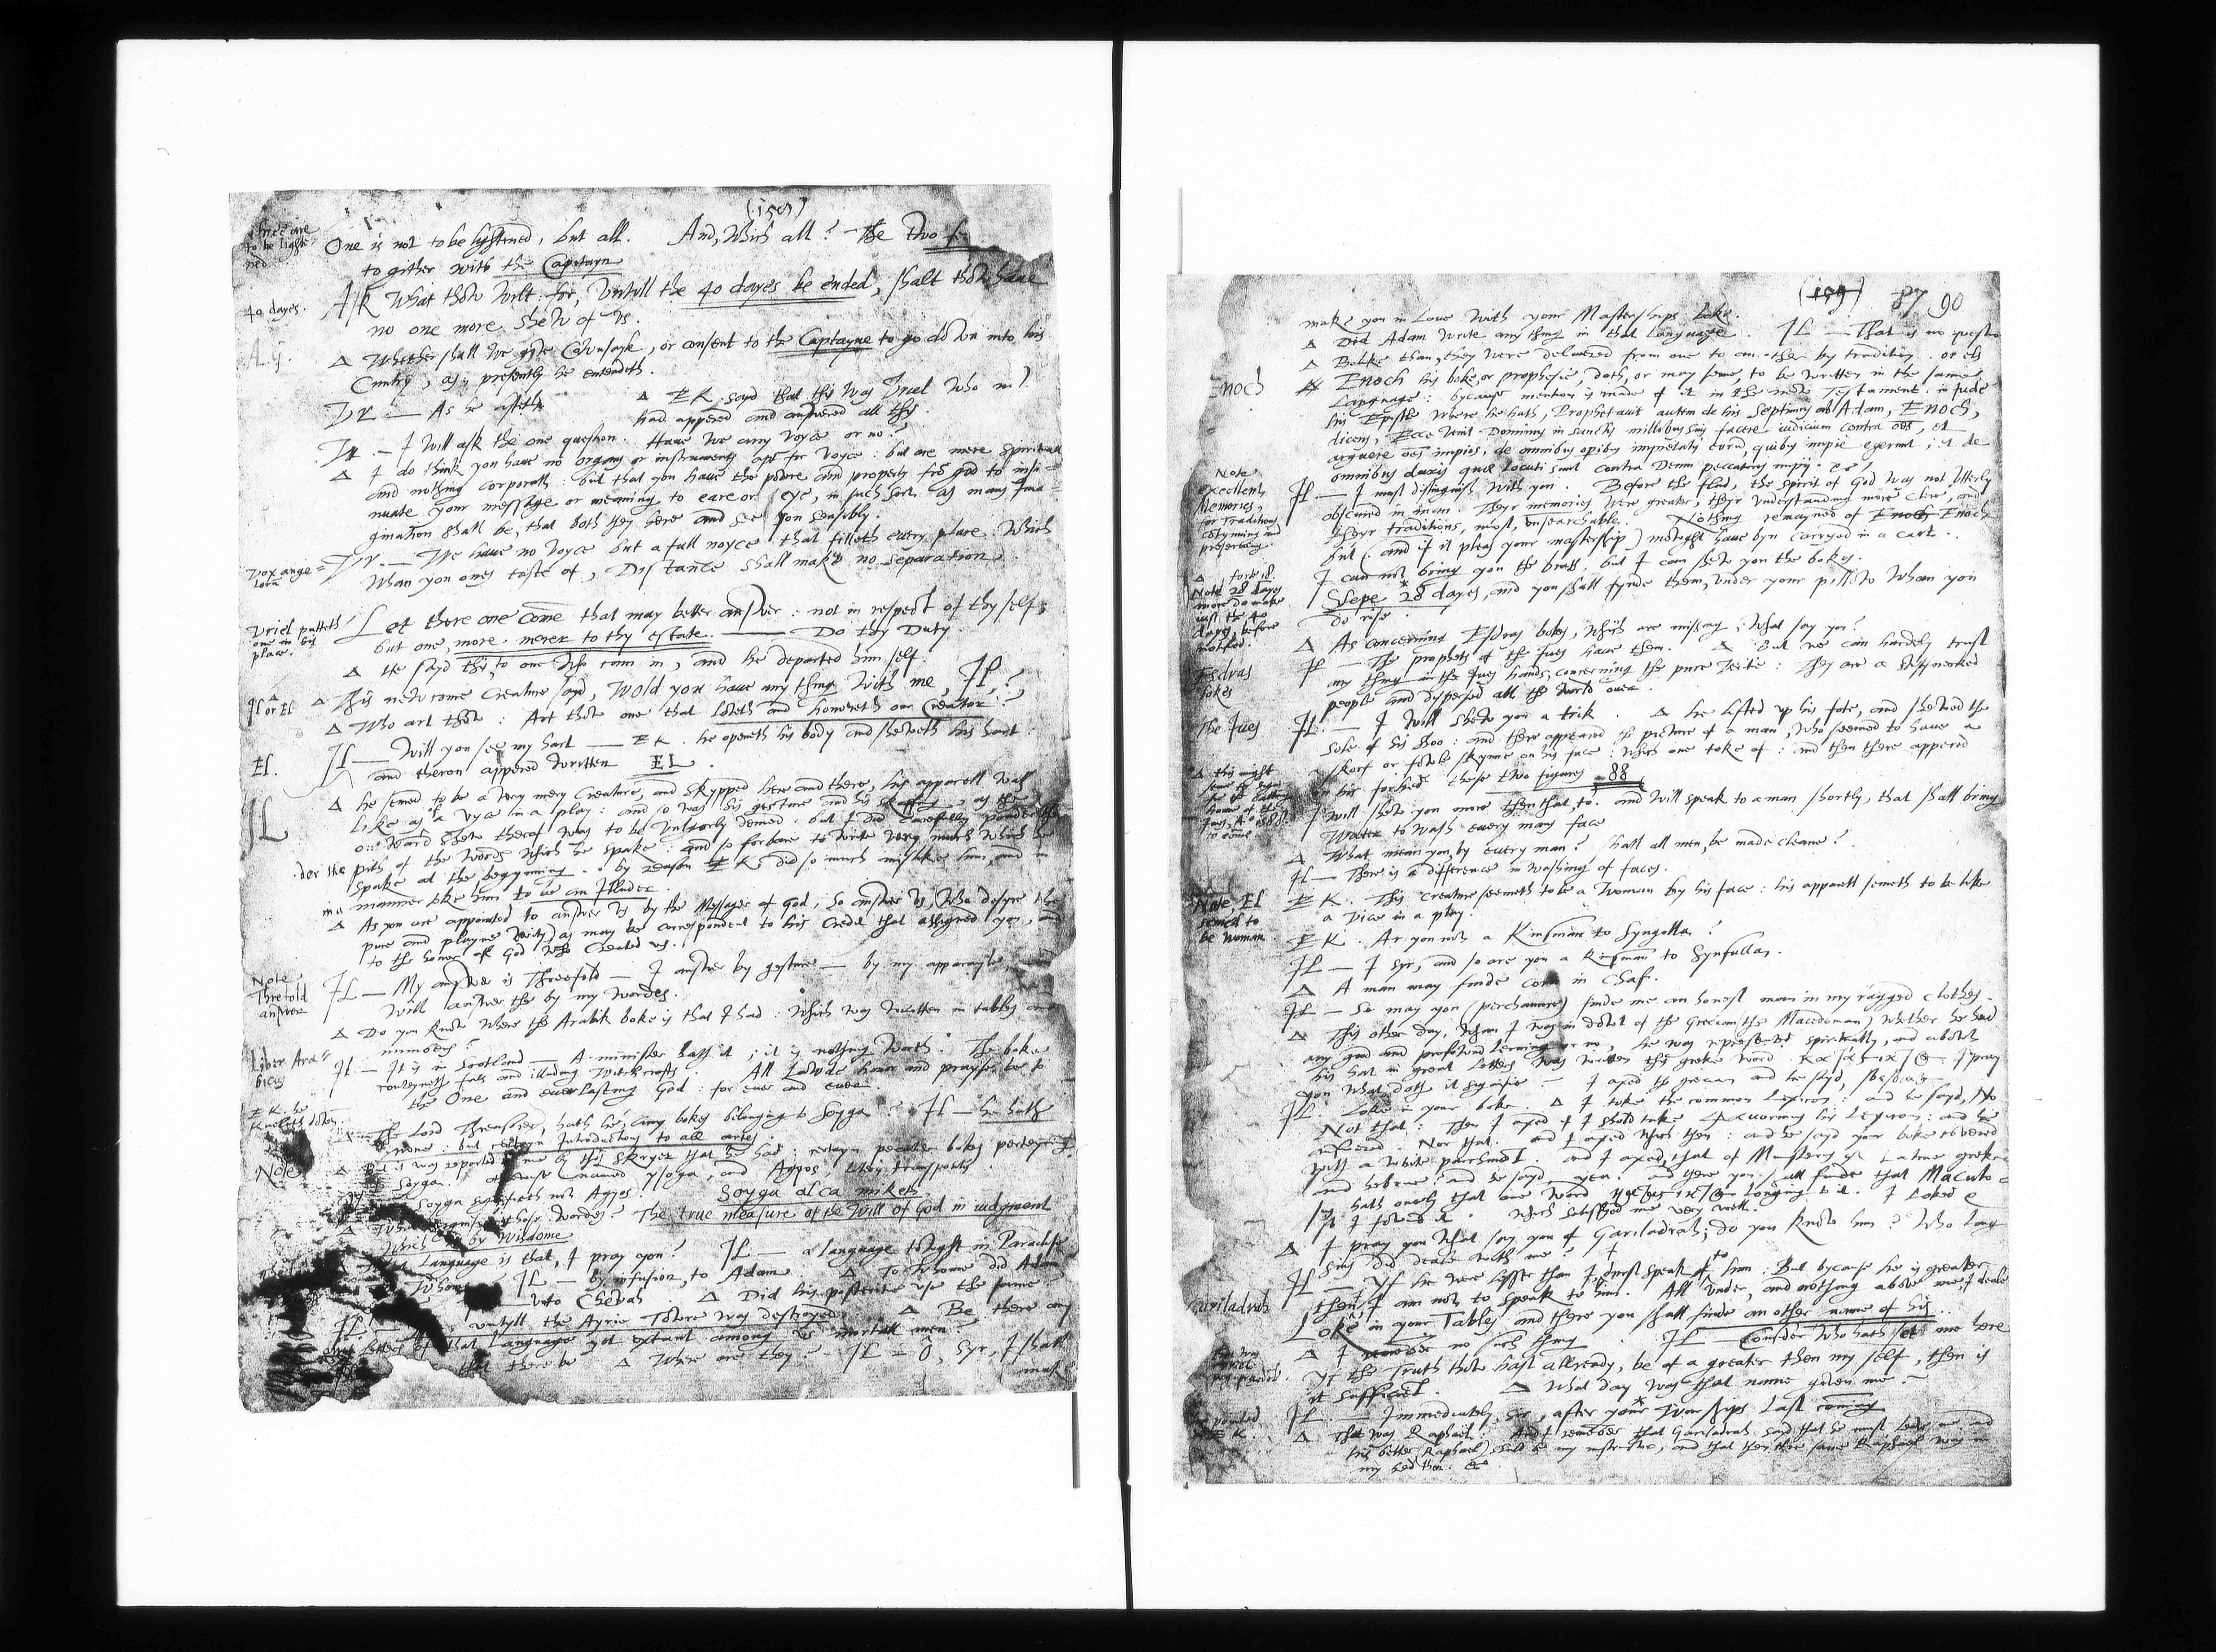 One is not to be lightened, but all. And, Which all? The two
to gither with the Captayn
three are
to be lighte
ned
40 dayes.
Ask What thow wilt: for, Vntyll the 40 dayes be ended, shalt thow have
no one more shew of vs.
Δ Whether shall we give Cownsayle, or consent to the Captayne to go down into his
Cuntry, as, presently he entendeth.
Vr — As he listeth
Δ EK sayd that this was Vriel who now
had appered and answered all this.
Vr. — I will ask the one question. Haue we any voyce or no?
Δ I do think you haue no organs or instruments apt for voyce: but are mere spirituall
and nothing corporall: but that you haue the powre and property from god to insi=
nuate your message or meaning to eare or eye, in such sort as mans Ima=
gination shall be, that both they here and see you sensibly.
Vox ange=
lorum
Vr. — We haue no voyce but a full noyce that filleth every place. Which
Whan you ones taste of, Distance shall make no separation.
Vriel putteth
one in his
place.
Let there one come that may better answer: not in respect of thy self,
but one, more nerer to thy estate. — Do thy Duty.
Δ He sayd this, to one who cam in, and he departed him self.
Il or El
Δ This new come Creature sayd, Wold you haue any thing with me, Il,?
Δ Who art thow: Art thow one that loveth and honoreth our Creator?
El.
Il — Will you see my hart — EK. he openeth his body and sheweth his hart:
and theron appered written EL.
IL
Δ he semed to be a very mery Creature, and skypped here and there, his apparell was
like as of a vyce in a play: and so was his gesture and his skoffing, as the
outward shew therof was to be vulgarly demed: but I did carefully ponder the
pith of the words which he spake: and so forbare to write very much which he
spake at the begynning by reason EK did so much mislike him, and in
in a manner toke him to be an Illuder.
Δ As you are appointed to answer vs by the Messager of god, so answer vs, (Who desyre the
pure and playne verity,) as may be correspondent to his Credit that assigned you, and
to the honor of God who Created vs.
Note
Threfold
answer
IL — My answer is Threefold — I answer by gesture — by my apparayle,
Will answer the by my wordes.
Δ Do you know where the Arabik boke is that I had: Which was written in tables and
numbers?
Liber Ara=
bicus
Il. — It is in Scotland — A minister hath it; it is nothing worth. The boke
conteyneth fals and illuding Witchcrafts. All Lawde honor and prayse be to
the One and everlasting God: for ever and ever.
Δ The Lord Threasorer, hath he any bokes belonging to Soyga? Il — he hath
none: but certayn Introductions to all artes.
Note
Δ But it was reported to me by this Skryer that he had: certayn peculier bokes perteyning
to Soyga: otherwise named ysoga, and Agyos, literis transpositis.
Soyga signifieth not Agyos. Soyga alca miketh
Δ What signifie those wordes? The true measure of the Will of God in iudgment
Which is by Wisdome
Δ What Language is that, I pray you? IL — a language towght in Paradise
Δ To Whome? IL — by infusion, to Adam. Δ To whome did Adam
— vnto Chevah. Δ Did his posteritie vse the same
IL — vntyll the Ayrie Towre was destroyed. Δ Be there any
letters of that Language yet extant among vs mortall men?
that there be. Δ Where are they? — IL — O, Syr, I shall
make
(159) 87 90
make you in Love with your Masterships boke.
Δ Did Adam write any thing in that Language. IL — That is no question
Δ Belike than, they were delivered from one to an other by tradition or els
Enoch
Enoch his boke, or prophesie, doth, or may seme, to be written in the same
Language: bycause mention is made of it in the new Testament in Jude
his Epistle where he hath, Prophetauit autem de his Septimus ab Adam, Enoch,
dicens, Ecce venit Dominus in sanctis millibus suis facere iudicium contra omnes, et
arguere omnes impios, de omnibus operibus impietatis eorum, quibus impie egerunt, et de
omnibus duris quae locuti sunt contra Deum peccatores impij. &c?
Note
excellent
Memories,
for Traditions
contynuing and
preserving.
Il — I must distinguish with you. Before the flud, the spirit of God was not vtterly
obscured in man. Theyr memories were greater, theyr vnderstanding more clere, and
theyr traditions, most, vnsearchable. Nothing remayned of Enoch Enoch
but (and if it pleas your mastership) mowght haue byn carryed in a cart.
I can not bring you the brass, but I can shew you the bokes.
Note 28 dayes
Slepe 28 dayes, and you shall fynde them, vnder your pillow whan you
do rise.
Esdras
bokes
Δ As concerning Esdras bokes, which are missing, What say you?
Il — The prophets of the Jues haue them. Δ But we can hardely trust
any thing in the Jues hands, concerning the pure veritie: They are a stiffnecked
people and dispersed all the world over.
The Jues
Il — I will shew you a trik. Δ he lifted vp his fote, and shewed the
sole of his shoo: and there appeared the picture of a man, who seemed to haue a
skorf or fowle skynne on his face: which one toke of: and then there appered
on his forhed these two figures 88
I will shew you more then that, to: and will speak to a man shortly, that shall bring
Water to wash every mans face.
Δ What mean you, by every man? shall all men, be made cleane?
Il — There is a difference in washing of faces.
Note, El
semed to
be woman
EK. This creature seemeth to be a Woman by his face: his apparell semeth to be like
a Vice in a play.
EK. Ar you not a Kinsman to Syngolla?
IL — I Syr, and so are you a kinsman to Synfullas.
Δ A man may finde corn in Chaf.
Il — So may you (perchaunce) finde me an honest man in my ragged clothes.
Δ This other day, whan I was in dowt of the Grecian (the Macedonian) whether he had
any good and profownd lerning or no, he was represented spiritually, and abowt
his hat in great letters was written this greke word I pray
you what doth it signifie — I axed the grecian and he sayd,
IL. Loke in your boke. Δ I toke the common Lexicon: and he sayd, No
Not that: Then I axed if I shold take Phauorinus his Lexicon: and he
answered Nor that. and I axed which then: and he sayd your boke covered
with a white parchment. and I axed, that of Munsterus Latine greke
and hebrue? and he sayd, yea: and there you shall finde that Macedo
hath onely that one word longing to it. I loked &
I fownd it. Which satisfyed me very well.
Δ I pray you what say you of Gariladrah; do you know him? Who long
sins did deale with me?
Gariladrah
Il — Yf he were lesser than I, I durst speak to him: But bycause he is greater
then I, I am not to speak to him. All vnder, and nothing above me I deale
Loke in your Tables and there you shall finde an other name of his.
Δ I remember no such thing IL — Consider who hath set me here
Yf the Truth thow hast allready, be of a greater then my self, then is
it sufficient. Δ What day was that name given me —
IL. — Immediately, Sir, after your Worships last coming
Δ That was Raphael. And I remember that Gariladrah said that he must leave me and
his better (Raphael) shold be my instructor, and that then the same Raphael was in
my hed then. &c